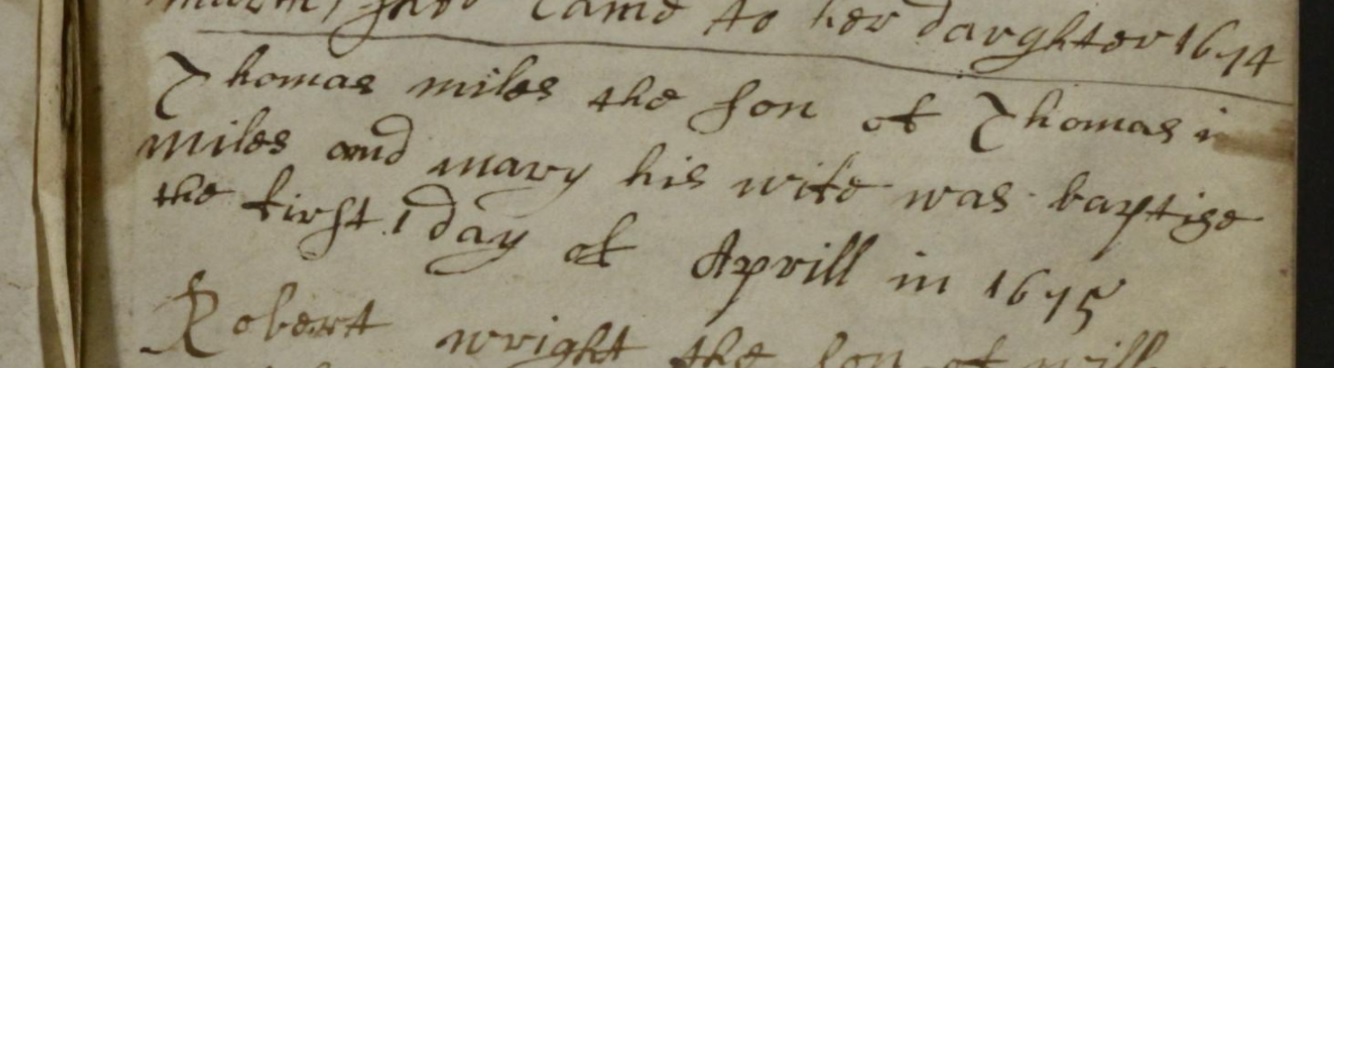 came to her daughter 1674
Thomas miles the son of Thomas
miles and mary his wife was baptise
the first 1 day of Aprill in 1675
Robert wright the son of will